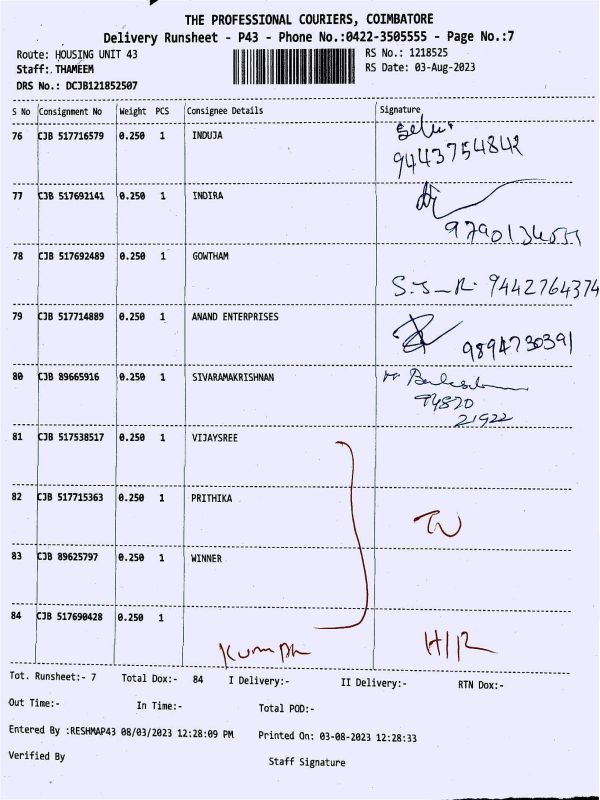 THE PROFESSIONAL COURIERS, COIMBATORE
Delivery Runsheet - P43 - Phone No.:0422-3505555 - Page No.:7
Route: HOUSING UNIT 43
RS No.: 1218525
Staff: THAMEEM
RS Date: 03-Aug-2023
DRS No.: DCJB121852507
S No Consignment No Weight PCS Consignee Details Signature
76 CJB 517716579 0.250 1 INDUJA
9443754842
77 CJB 517692141 0.250 1 INDIRA
78 CJB 517692489 0.250 1 GOWTHAM
S.J-R. 9442764374
79 CJB 517714889 0.250 1 ANAND ENTERPRISES
9894730391
80 CJB 89665916 0.250 1 SIVARAMAKRISHNAN
94870
21922
81 CJB 517538517 0.250 1 VIJAYSREE
82 CJB 517715363 0.250 1 PRITHIKA
83 CJB 89625797 0.250 1 WINNER
84 CJB 517690428 0.250 1
Tot. Runsheet:- 7 Total Dox:- 84 I Delivery:- II Delivery:- RTN Dox:-
Out Time:- In Time:- Total POD:-
Entered By :RESHMAP43 08/03/2023 12:28:09 PM Printed On: 03-08-2023 12:28:33
Verified By Staff Signature